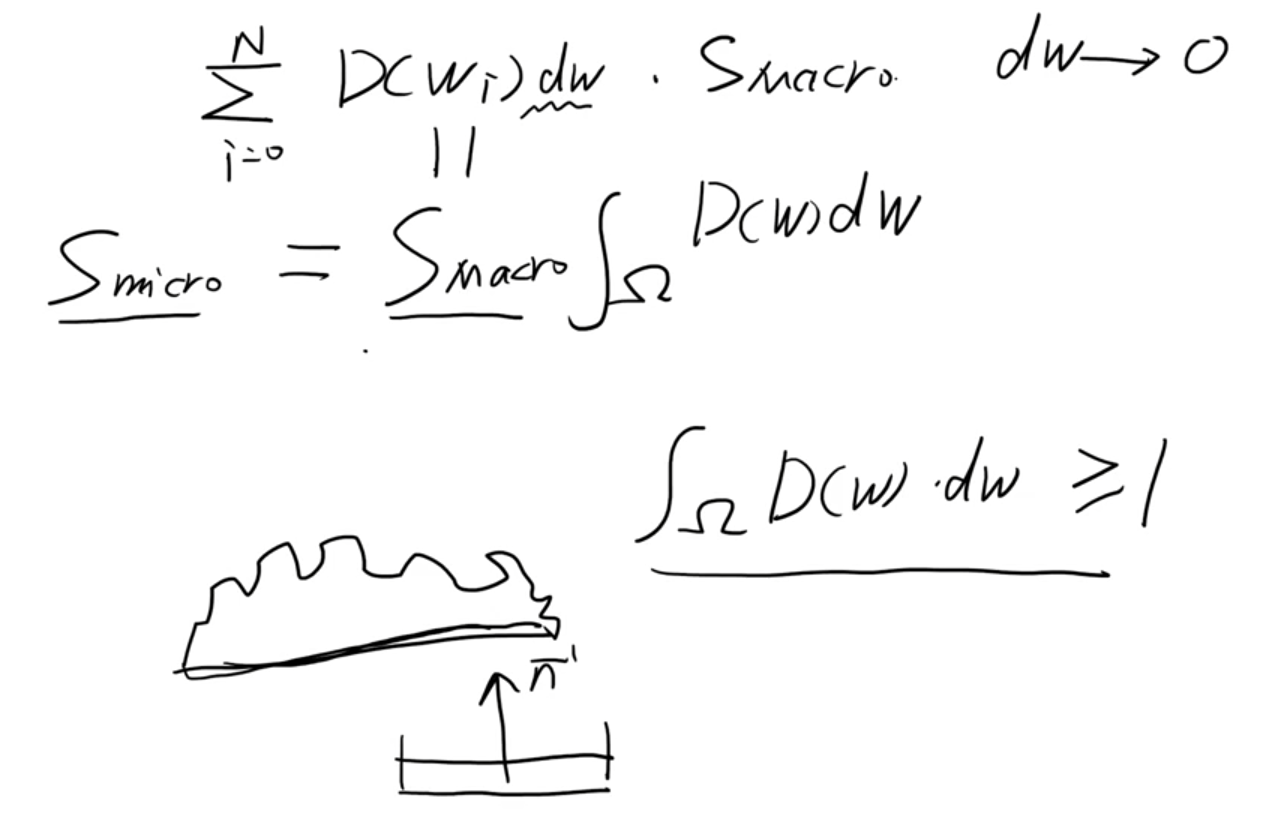 N
∑ D(wᵢ) dw · Smacro. dw → 0
i=0
||
Smicro = Smacro ∫Ω D(w)dw
∫Ω D(w) · dw ≥ 1
n